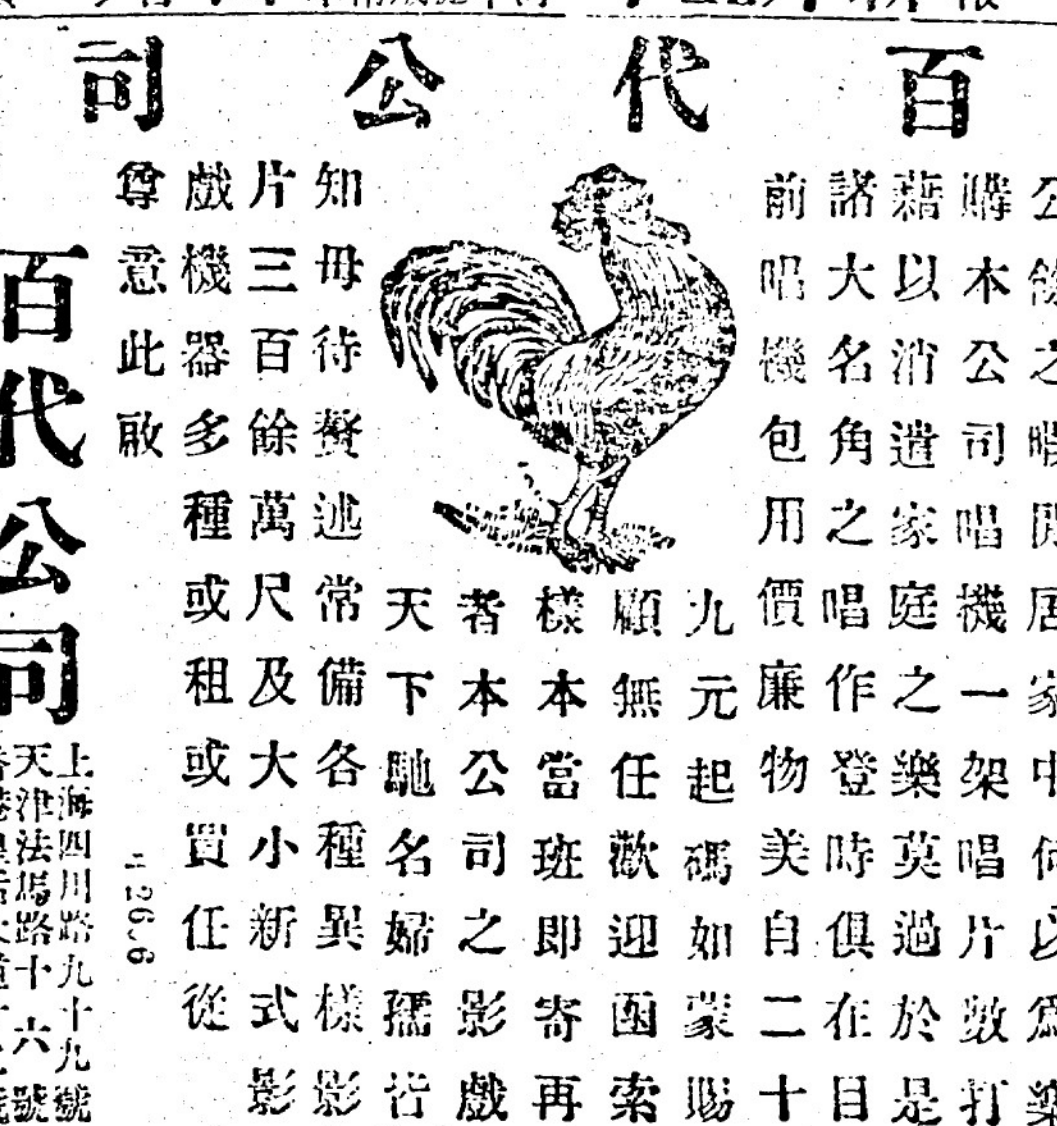 百代公司
公餘之暇閒居家中何以爲樂
購本公司唱機一架唱片數打
藉以消遣家庭之樂莫過於是
諸大名角之唱作登時俱在目
前唱機包用價廉物美自二十
九元起碼如蒙賜
顧無任歡迎函索
樣本當班即寄再
者本公司之影戲
天下馳名婦孺皆
知毋待贅述常備各種異樣影
片三百餘萬尺及大小新式影
戲機器多種或租或買任從
尊意此啟
26.6
百代公司
上海四川路九十九號
天津法馬路十六號